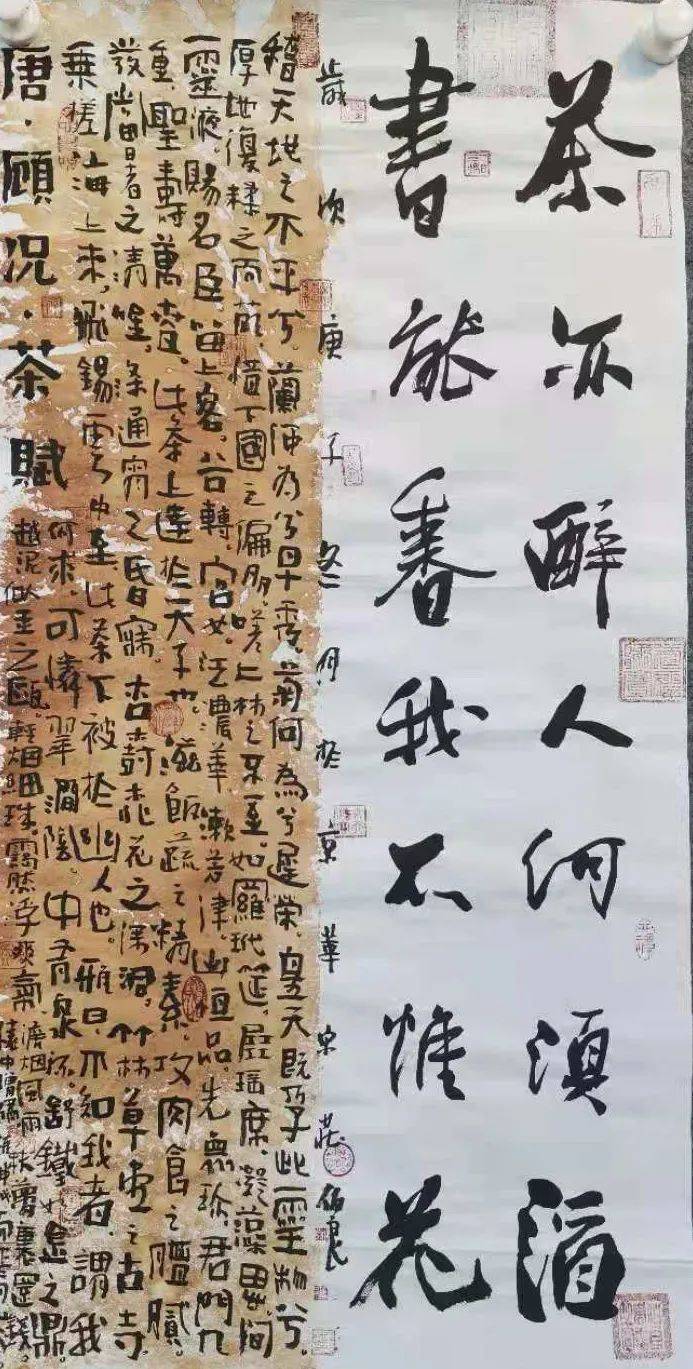 茶亦醉人何須酒
書能香我不惟花
歲次庚子冬月於京華宋莊 伯良
稽天地之不平兮，蘭何為兮早秀，菊何為兮遲榮，皇天既孕此靈物兮，
厚地復糅之而萌，惜下國之偏多，嗟上林之不至。如羅玳筵，展瑤席，凝藻思，間
靈液，賜名臣，留上客，谷轉，宮女，泛濃華，漱芳津，出恒品，先眾珍，君門九
重，聖壽萬春，此茶上達於天子也。滋飯蔬之精素，攻肉食之膻膩，
發當暑之清吟，滌通宵之昏寐。杏樹桃花之深洞，竹林草堂之古寺，
乘槎海上來，飛錫雲中至，此茶下被於幽人也。雅曰，不知我者，謂我
何求，可憐翠澗陰，中有泉流，舒鐵如金之鼎，
越泥似玉之甌，輕烟細珠，靄然浮爽氣，淡烟風雨，秋夢裏還錢，
懷中贈橘
唐·顧況·茶賦